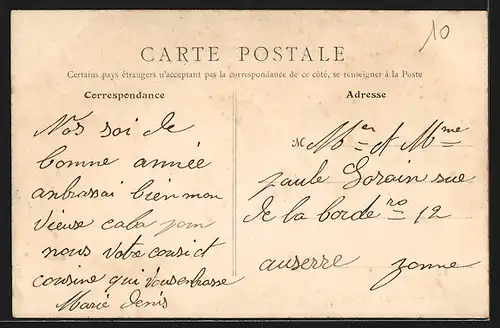 10
CARTE POSTALE
Certains pays étrangers n'acceptant pas la correspondance de ce côté, se renseigner à la Poste
Correspondance
Nos soi de
bonne année
anbrassai bien mon
vieuse caba pom
nous votre cousi et
cousine qui vous enbrasse
Marie Denis
Adresse
M Mer et Mme
paule Lorain rue
de la borde nro 12
auserre yonne